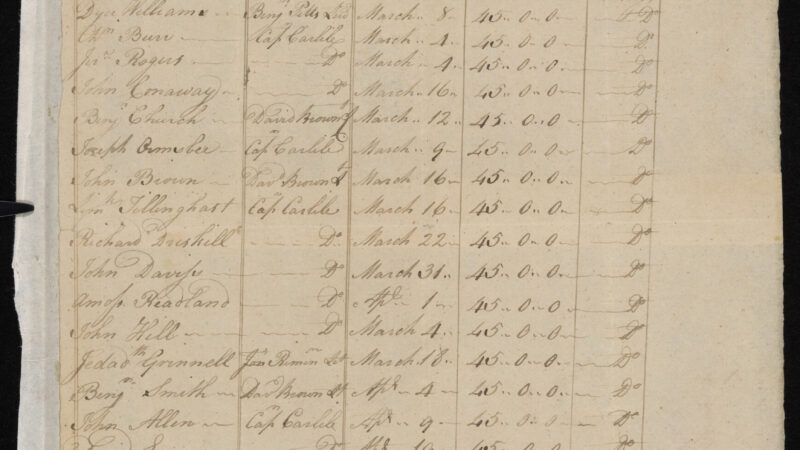 Dyer Williams Benj Pitts Lieut March 8 45 0 0 4 Do
Burr Cap Carlile March 4 45 0 0 Do
Rogers Do March 4 45 0 0 Do
John Conaway Do March 16 45 0 0 Do
Benj Church David Brown March 12 45 0 0 Do
Joseph Ormsbee Cap Carlile March 9 45 0 0 Do
John Brown Dad Brown Lt March 16 45 0 0 Do
Tillinghast Cap Carlile March 16 45 0 0 Do
Richard Driskill Do March 22 45 0 0 Do
John Daviss Do March 31 45 0 0 Do
Amoss Headland Do Apl 1 45 0 0 Do
John Hill Do March 4 45 0 0 Do
Jedadth Grinnell Lt March 18 45 0 0 Do
Benjn Smith Dad Brown Lt Apl 4 45 0 0 Do
John Allen Cap Carlile Apl 9 45 0 0 Do
Do Apl 10 45 0 0 Do